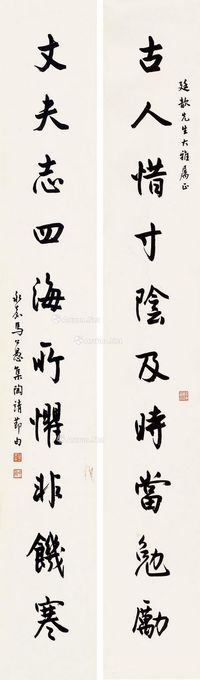 廷歆先生大雅屬正
古人惜寸陰及時當勉勵
丈夫志四海所懼非饑寒
永嘉馬公愚集陶靖節句